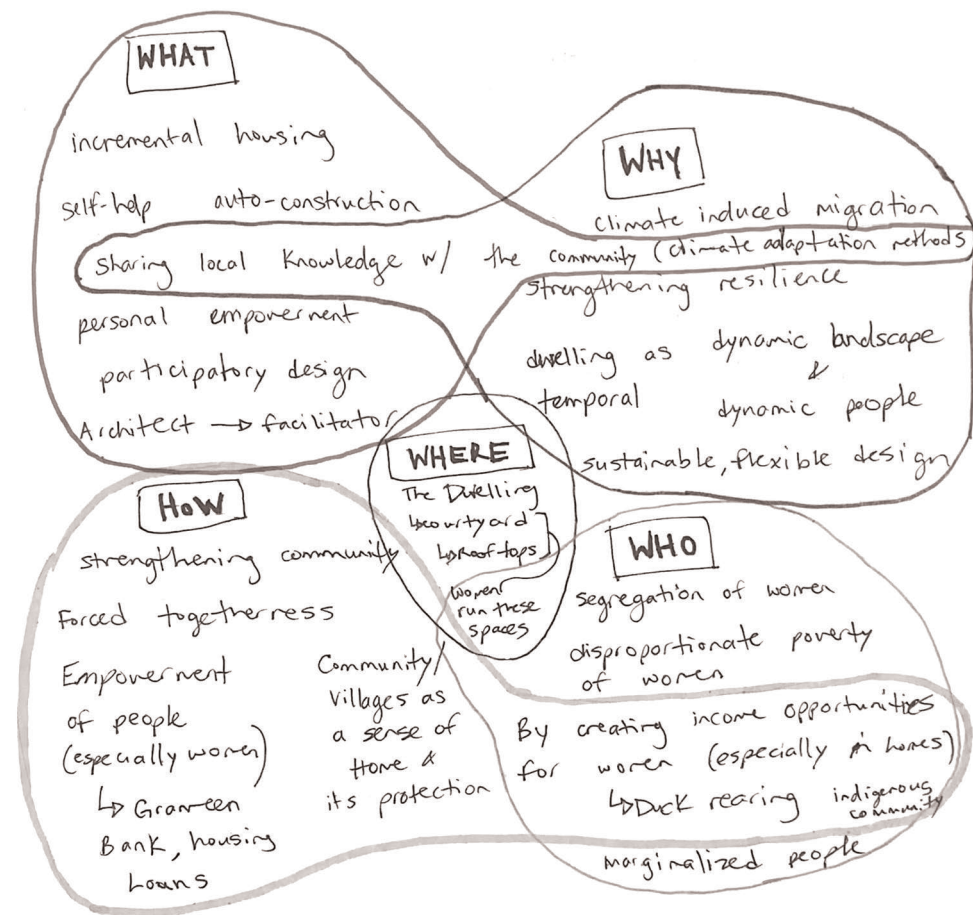 WHAT
incremental housing
self-help auto-construction
sharing local knowledge w/ the community (climate adaptation methods
personal empowerment
participatory design
Architect → facilitator
WHY
climate induced migration
strengthening resilience
dwelling as temporal
dynamic landscape
&
dynamic people
sustainable, flexible design
WHERE
The Dwelling
↳ courtyard
↳ Roof tops
women run these spaces
HOW
strengthening community
Forced togetherness
Empowerment
of people
(especially women)
↳ Grameen
Bank, housing
Loans
Community/
villages as
a sense of
Home &
its protection
WHO
segregation of women
disproportionate poverty
of women
By creating income opportunities
for women (especially in homes)
↳ Duck rearing indigenous community
marginalized people